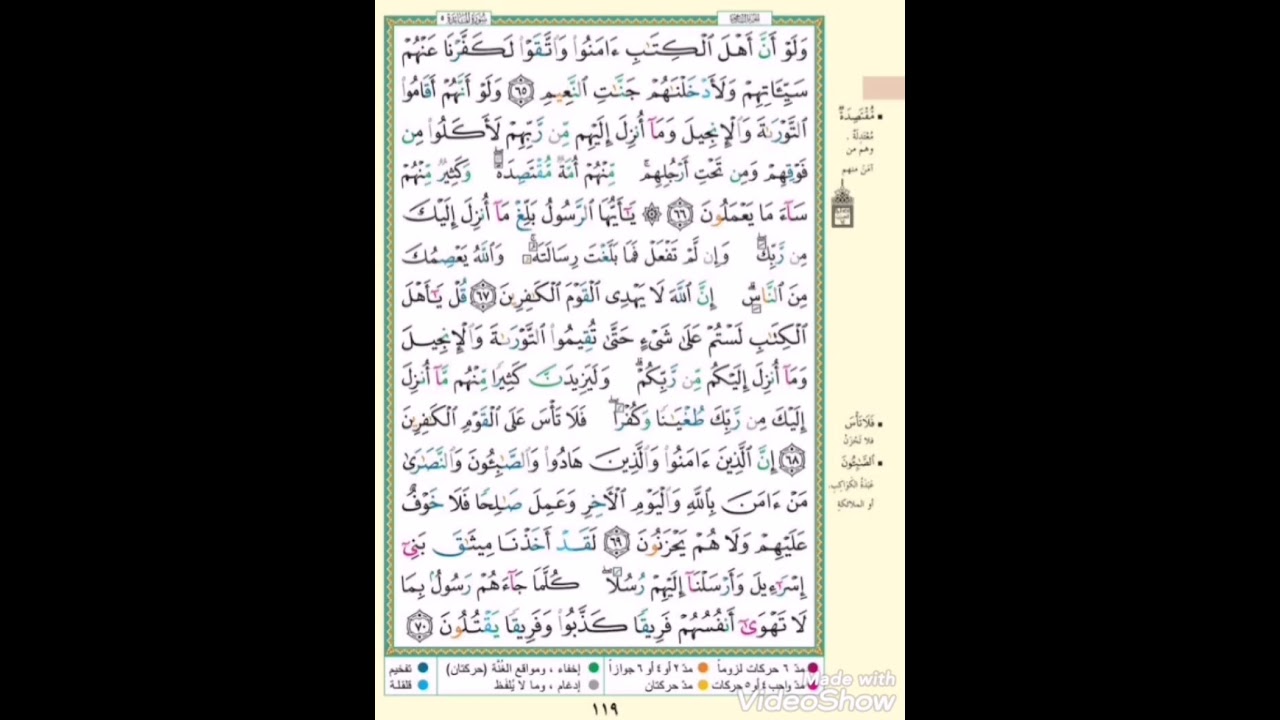 سُورَةُ المَائِدَة ٥
وَلَوْ أَنَّ أَهْلَ ٱلْكِتَٰبِ ءَامَنُوا۟ وَٱتَّقَوْا۟ لَكَفَّرْنَا عَنْهُمْ
سَيِّـَٔاتِهِمْ وَلَأَدْخَلْنَٰهُمْ جَنَّٰتِ ٱلنَّعِيمِ ٦٥ وَلَوْ أَنَّهُمْ أَقَامُوا۟
ٱلتَّوْرَىٰةَ وَٱلْإِنجِيلَ وَمَآ أُنزِلَ إِلَيْهِم مِّن رَّبِّهِمْ لَأَكَلُوا۟ مِن
فَوْقِهِمْ وَمِن تَحْتِ أَرْجُلِهِم ۚ مِّنْهُمْ أُمَّةٌ مُّقْتَصِدَةٌ ۖ وَكَثِيرٌ مِّنْهُمْ
سَآءَ مَا يَعْمَلُونَ ٦٦ ۞ يَٰٓأَيُّهَا ٱلرَّسُولُ بَلِّغْ مَآ أُنزِلَ إِلَيْكَ
مِن رَّبِّكَ ۖ وَإِن لَّمْ تَفْعَلْ فَمَا بَلَّغْتَ رِسَالَتَهُۥ ۚ وَٱللَّهُ يَعْصِمُكَ
مِنَ ٱلنَّاسِ ۗ إِنَّ ٱللَّهَ لَا يَهْدِى ٱلْقَوْمَ ٱلْكَٰفِرِينَ ٦٧ قُلْ يَٰٓأَهْلَ
ٱلْكِتَٰبِ لَسْتُمْ عَلَىٰ شَىْءٍ حَتَّىٰ تُقِيمُوا۟ ٱلتَّوْرَىٰةَ وَٱلْإِنجِيلَ
وَمَآ أُنزِلَ إِلَيْكُم مِّن رَّبِّكُمْ ۗ وَلَيَزِيدَنَّ كَثِيرًا مِّنْهُم مَّآ أُنزِلَ
إِلَيْكَ مِن رَّبِّكَ طُغْيَٰنًا وَكُفْرًا ۖ فَلَا تَأْسَ عَلَى ٱلْقَوْمِ ٱلْكَٰفِرِينَ
٦٨ إِنَّ ٱلَّذِينَ ءَامَنُوا۟ وَٱلَّذِينَ هَادُوا۟ وَٱلصَّٰبِـُٔونَ وَٱلنَّصَٰرَىٰ
مَنْ ءَامَنَ بِٱللَّهِ وَٱلْيَوْمِ ٱلْـَٔاخِرِ وَعَمِلَ صَٰلِحًا فَلَا خَوْفٌ
عَلَيْهِمْ وَلَا هُمْ يَحْزَنُونَ ٦٩ لَقَدْ أَخَذْنَا مِيثَٰقَ بَنِىٓ
إِسْرَٰٓءِيلَ وَأَرْسَلْنَآ إِلَيْهِمْ رُسُلًا ۖ كُلَّمَا جَآءَهُمْ رَسُولٌۢ بِمَا
لَا تَهْوَىٰٓ أَنفُسُهُمْ فَرِيقًا كَذَّبُوا۟ وَفَرِيقًا يَقْتُلُونَ ٧٠
▪ مُّقْتَصِدَةٌ
مُعْتَدِلَةٌ .
وهم من
آمَنَ منهم
▪ فَلَا تَأْسَ
فلا تَحْزَنْ
▪ ٱلصَّٰبِـُٔونَ
عَبَدَةُ الكَوَاكِبِ،
أو الملائكةِ
مدّ ٦ حركات لزوماً مدّ ٢ أو ٤ أو ٦ جوازاً إخفاء ، ومواقع الغُنَّة (حركتان) تفخيم
مدّ واجب ٤ أو ٥ حركات مدّ حركتان إدغام ، وما لا يُلفَظ قلقلة
١١٩
Made with
VideoShow